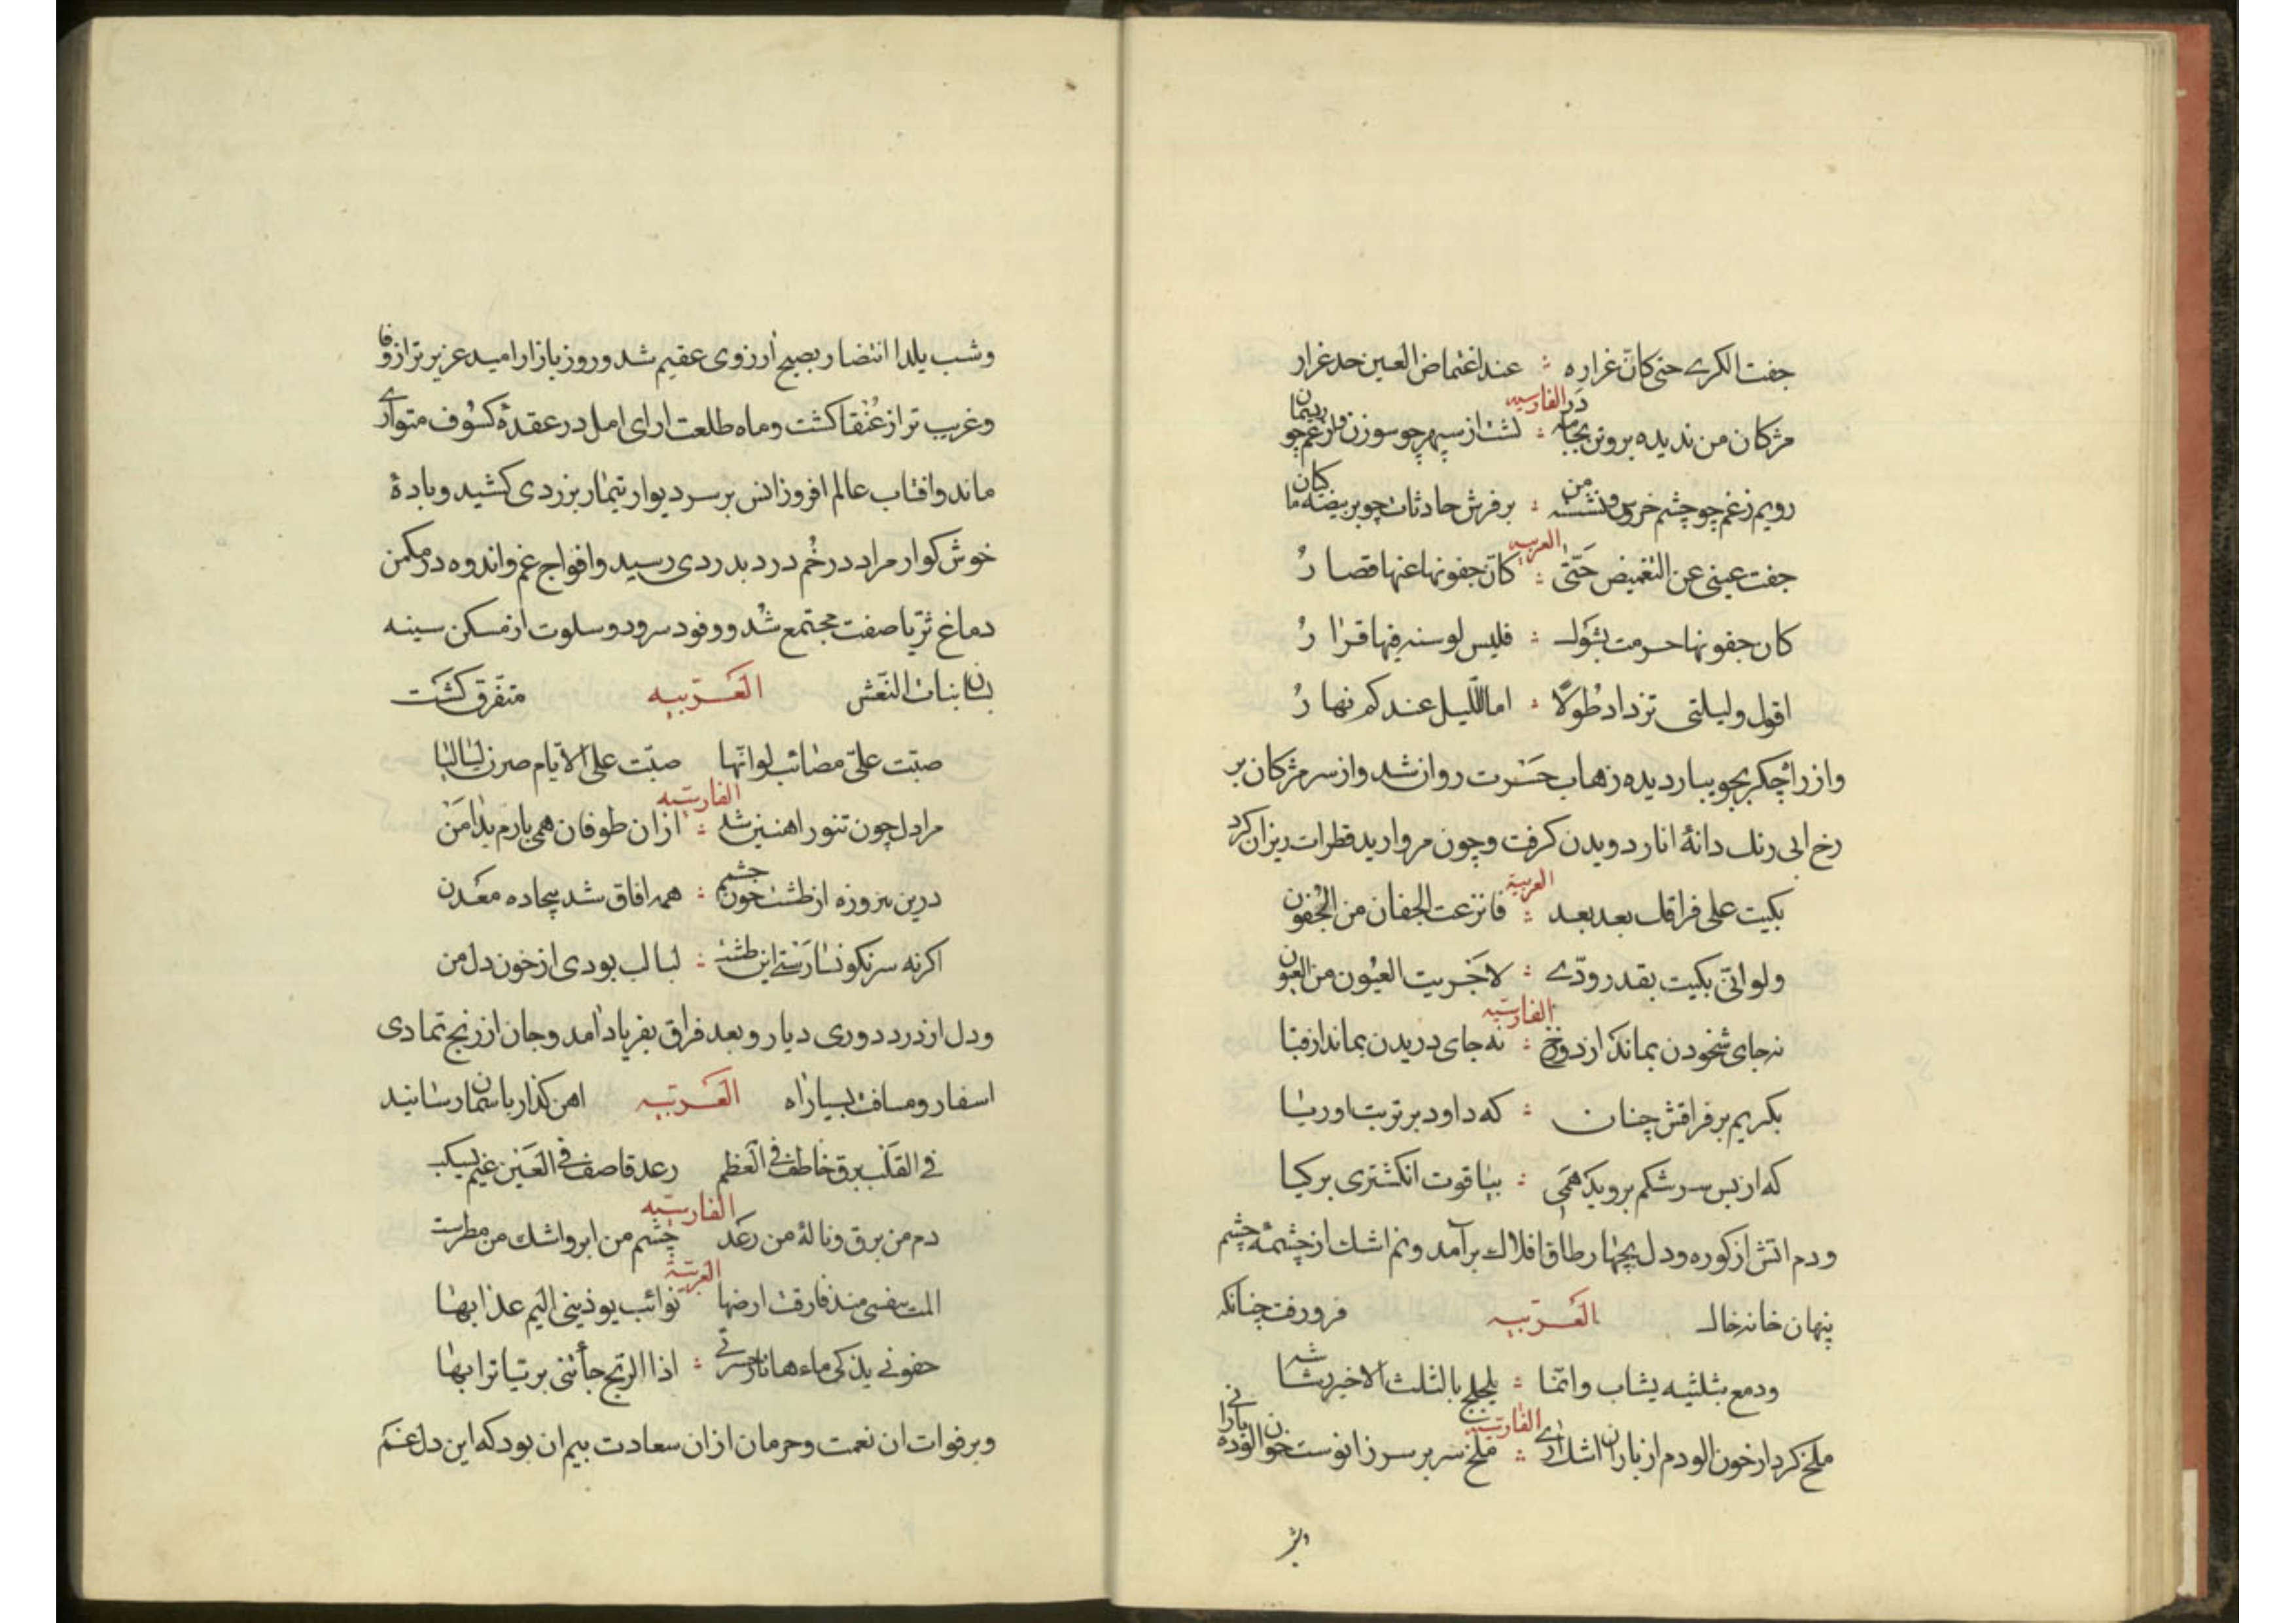 جفت الکرے حتی کانّ غراره ؛ عند اغتماض العین حد غرار
الفارسیه
مژکان من ندیده برون بجامه در ؛ کشت از سپهر چو سوزن و از غم چو ریسمان
رویم ز غم چو چشم خروس و نشسته من ؛ بر فرش حادثات چو بر بیضه ماکیان
العربیه
جفت عینی عن التغمیض حَتّی ؛ کانّ جفونها عنها قصارُ
کان جفونها حرمت بشوک ؛ فلیس لوسنه فیها قرارُ
اقول ولیلتی تزداد طُولًا ؛ اما اللّیل عندکم نهارُ
واز راچکر بجویبار دیده زهاب حَسْرت روان شد واز سر مژکان بر
رخ ابی رنک دانۀ انار دویدن کرفت وچون مروارید قطرات ریزان کرد
العربیة
بکیت علی فراقک بعد بعد ؛ فانزعت الجفان من الجُفون
ولو انّی بکیت بقدر ودّے ؛ لاجَریت العیُون من العیون
الفارسیّه
نه جای شخودن بماند از دو رخ ؛ نه جای دریدن بماند از قبا
بکریم بر فراقش چنان ؛ که داود بر تربت اوریا
که از بس سرشکم بروید هَمَی ؛ بیاقوت انکشتری بر کیا
ودم اتش از کوره ودل بچهار طاق افلاک برآمد ونم اشک از چشمۀ چشم
پنهان خانه خاک العَربیه فرو رفت چنانکه
ودمع بثلثیه یشاب وانّما ؛ یلجلج بالثلث الاخیر شاشه
الفارسیه
ملخ کردار خون الودم از باران اشک ارے ؛ ملخ سر بر سر زانوست خون الوده بارانی
وبر
وشب یلدا انتضار بصبح اۤرزوی عقیم شد وروز بازار امید عزیز تر از وفا
وغریب تر از عُنْقا کشت وماه طلعت ارای امل در عقدۀ کسُوف متوارے
ماند وافتاب عالم افروز انس بر سر دیوار تیمار بزردی کشید وبادۀ
خوش کوار مراد در خُم درد بدردی رسید وافواج غم واندوه در مکمن
دماغ ثریّا صفت مجتمع شُد ووفود سرود وسلوت از مسکن سینه
بسان بنات النّعش العَرَبیه متفّرق کشَت
صبّت علیّ مصائب لوانّها صبّت علی الایّام صرن لیالیا
الفارسیّه
مرا دل چون تنور اهنین شد ؛ ازان طوفان همی بارم بدامَن
درین پیروزه از طشت خون چشم ؛ همه افاق شد بیجاده معَدن
اکر نه سرنکونسارستے این طشت ؛ لبالب بودی از خون دل من
ودل از درد دوری دیار وبعد فراق بفریاد امد وجان از رنج تمادی
اسفار ومسافت بسیار اه العَربیه اهن کذار باسمان رسانید
فے القَلب برق خاطف فے العَظم رعد قاصف فے العَیْن غیم یسکب
الفارسیّه
دم من برق ونالۀ من رعَد چشم من ابر واشک من مطرست
العربیّة
المت بنفسی منذ فارقت ارضها نوائب یوذینی الیم عذابها
جفونے یذکی ماءها نار حسرتے ؛ اذا الرّیح جاءتنی بریّا ترابها
وبر فوات ان نعمت وحرمان ازان سعادت بیم ان بود که این دل غم